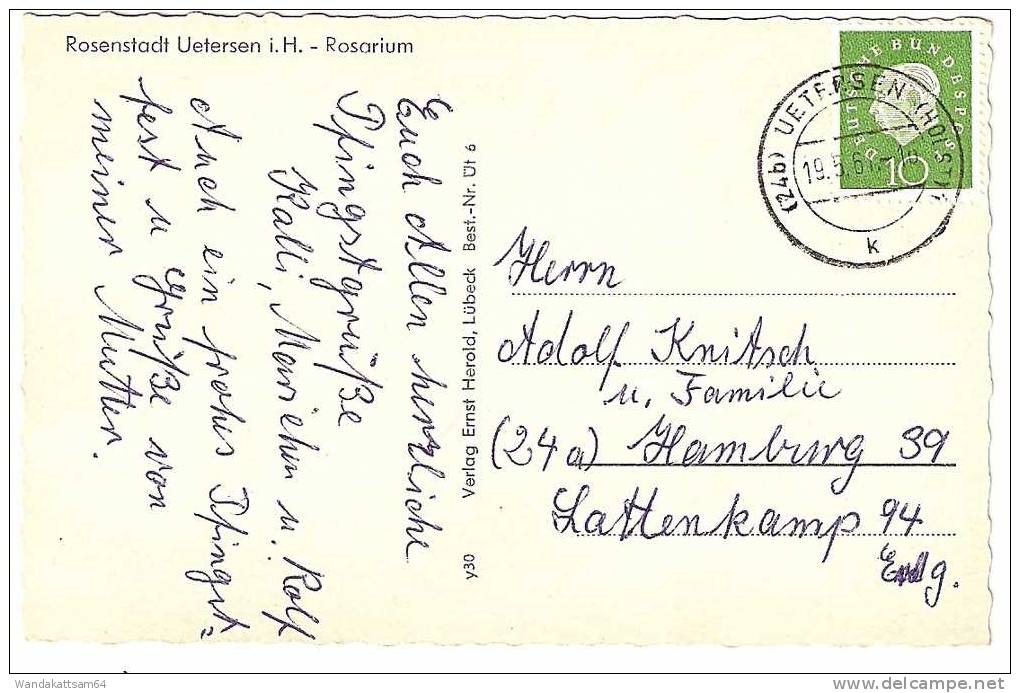 Rosenstadt Uetersen i. H. - Rosarium
Euch Allen herzliche
Pfingstgrüße
Kalli, Mariechen u. Rolf
Auch ein frohes Pfingst=
fest u Grüße von
meiner Mutter.
y30 Verlag Ernst Herold, Lübeck Best.-Nr. Üt 6
DEUTSCHE BUNDESPOST
10
(24b) UETERSEN (HOLST)
19.5.61
k
Herrn
Adolf Knitsch
u. Familie
(24a) Hamburg 39
Lattenkamp 94
Erdg.
Wandakattsam64
delcampe.net